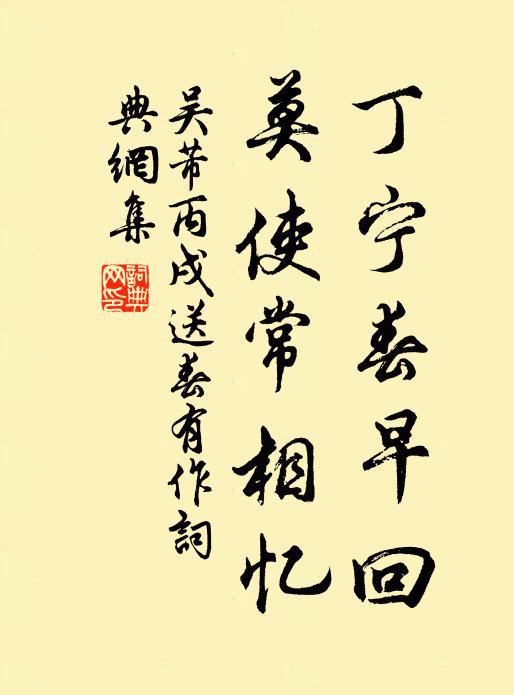 丁宁春早回
莫使常相忆
吴芾丙戌送春有作詞
典網集
詞典
网印